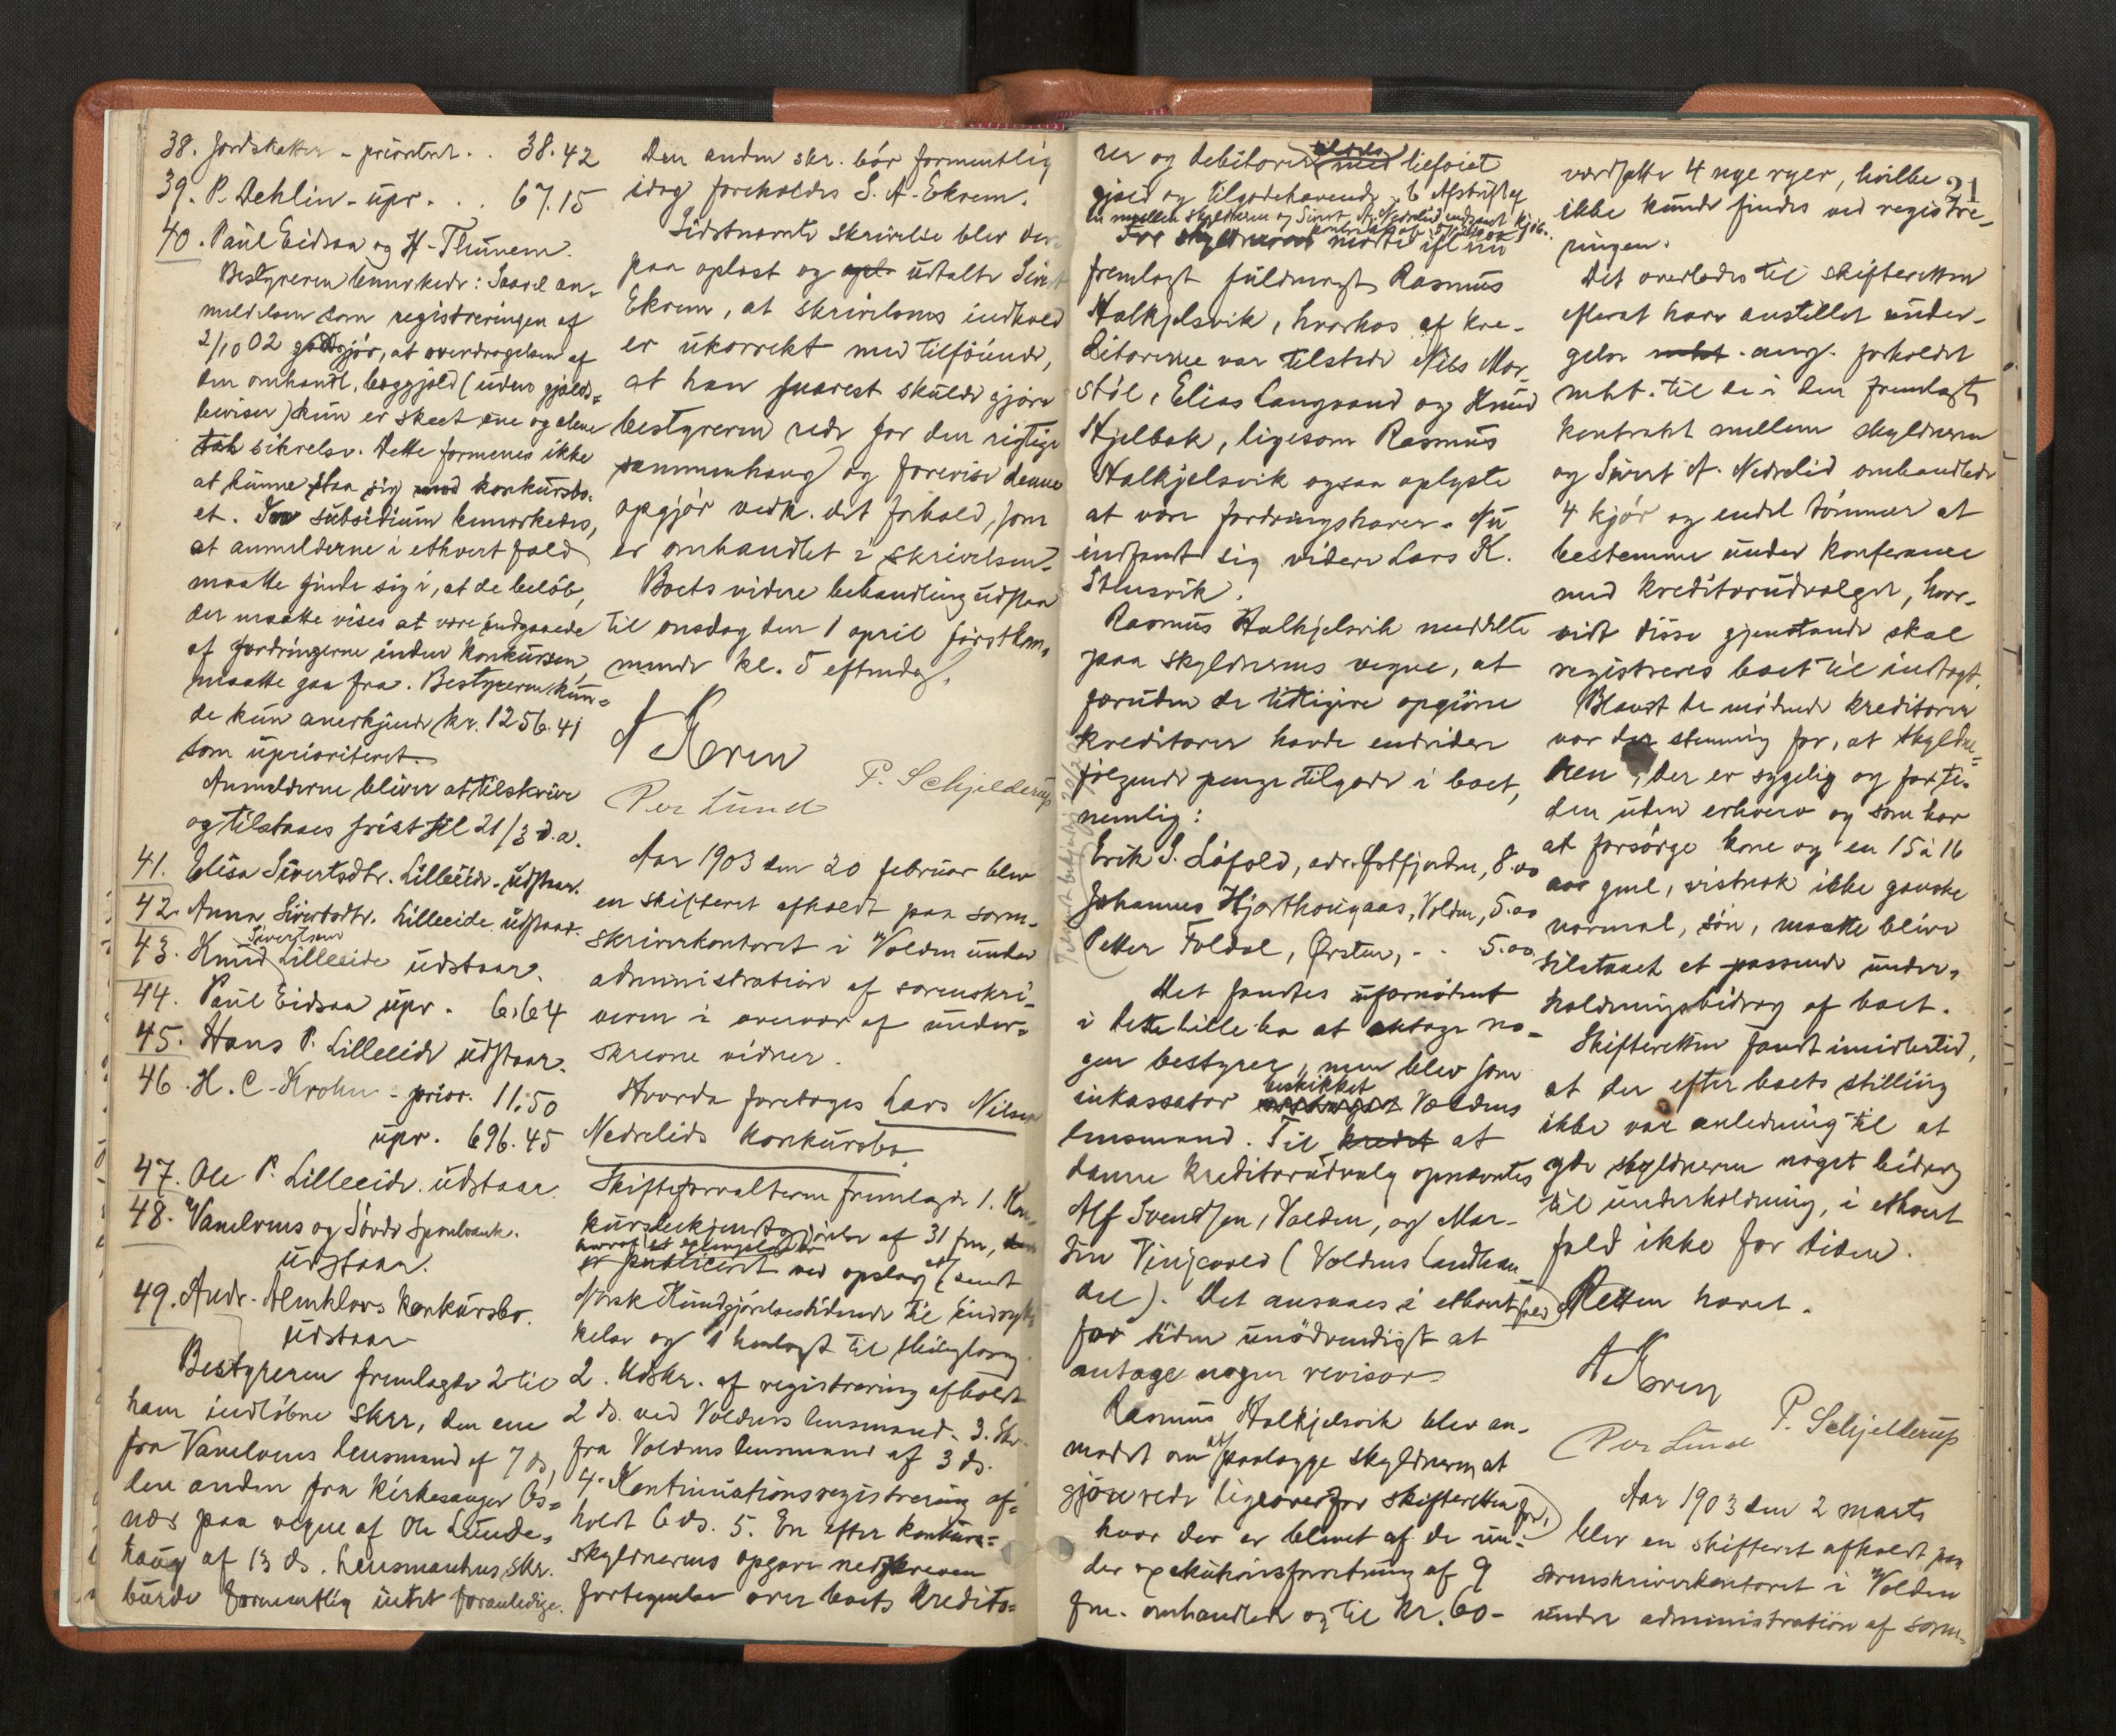 38. Jordskatter - prioritert . . 38.42
39. P. Dehlin - upr. . . 67.15
40. Paul Eidsaa og H. Thunem.
Bestyreren bemerkede: Saavel an-
meldelsen som registreringen af
2/10 02 godtgjør, at overdragelsen af
den omhandl. boggjæld (uden gjælds-
beviser) kun er skeet ene og alene
til sikkrelse. Dette formenes ikke
at kunne staa sig mod konkursbo-
et. In subsidium bemærkedes,
at anmelderne i ethvert fald
maatte finde sig i, at de beløb,
der maatte vises at være indgaaede
af fordringerne inden konkursen,
maatte gaa fra. Bestyreren kun-
de kun anerkjende kr. 1256.41
som uprioriteret.
Anmelderne bliver at tilskrive
og tilstaaes frist til 21/3 d.a.
41. Elisa Sivertsdtr. Lilleeide. udstaar.
42. Anna Sivertsdtr. Lilleeide udstaar.
43. Knud Sivertsen Lilleeide udstaar.
44. Paul Eidsaa upr. 6.64
45. Hans P. Lilleeide udstaar.
46. H. C. Krohn - prior. 11.50
upr. 696.45
47. Ole P. Lilleeide. udstaar
48. Vanelvens og Søvde Sparebank.
udstaar.
49. Andr. Almklovs konkursbo.
udstaar
Bestyreren fremlagde 2 til
ham indløbne skr., den ene
fra Vanelvens lensmand af 7 ds,
den anden fra kirkesanger Os-
nes paa vegne af Ole Lunde-
haug af 13 ds. Lensmandens skr.
burde formentlig intet foranledige.
Den anden skr. bør formentlig
idag foreholdes S. A. Ekrem.
Sidstnævnte skrivelse blev der-
paa oplæst og udtalte Sivert
Ekrem, at skrivelsens indhold
er ukorrekt med tilføiende,
at han snarest skulde gjøre
bestyreren rede for den rigtige
sammenhæng og forevise denne
opgjør vedk. det forhold, som
er omhandlet i skrivelsen.
Boets videre behandling udsaa
til onsdag den 1 april førstkom-
mende kl. 5 eftmdg.
A Koren
Per Lund P. Schjelderup
Aar 1903 den 20 februar blev
en skifteret afholdt paa soren-
skriverkontoret i Volden under
administration af sorenskri-
veren i overvær af under-
skrevne vidner.
Hvorda foretoges Lars Nilsen
Nedrelids konkursbo.
Skifteforvalteren fremlagde 1. Kon-
kursbekjendtgjørelse af 31 f.m.,
hvoraf et exemplar er
publiceret ved opslag, et sendt
Norsk Kundgjørelsestidende til indryk-
kelse og 1 henlagt til thinglæsning.
2. Udskr. af registrering afholdt
2 ds. ved Voldens lensmand. 3. Skr.
fra Voldens lensmand af 3 ds.
4. Kontinuationsregistrering af-
holdt 6 ds. 5. En efter konkurs-
skyldnerens opgave nedskreven
fortegnelse over boets kredito-
rer og debitorer med tilføiet
gjæld og tilgodehavende. 6 Afskrift af
en mellem skyldneren og Sivert A. Nedrelid indgaaet
For skyldneren mødte ifl nu
fremlagt fuldmagt Rasmus
Halkjelsvik, hvorhos af kre-
ditorerne var tilstede Nils Mor-
støl, Elias Langvand og Knud
Hjelbak, ligesom Rasmus
Halkjelsvik ogsaa oplyste
at være fordringshaver. Nu
indfandt sig videre Lars K.
Stensvik.
Rasmus Halkjelsvik meddelte
paa skyldnerens vegne, at
foruden de tidligere opgivne
kreditorer havde endvidere
følgende penge tilgode i boet,
nemlig:
Erik S. Løfold, adr. Østfjorden, 8.00
Johannes Hjorthougaas, Volden, 5.00
Petter Foldal, Ørsten, - . 5.00
Det fandtes ufornødent
i dette lille bo at antage no-
gen bestyrer, men blev som
inkassator beskikket Voldens
lensmand. Til at
danne kreditorudvalg opnævntes
Alf Svendsen, Volden, og Mar-
tin Vinjevold (Voldens landhan-
del). Det ansaaes i ethvert fald
for tiden unødvendigt at
antage nogen revisor.
Rasmus Halkjelsvik blev an-
modet om at paalægge skyldneren at
gjøre rede ligeoverfor skifteretten for,
hvor der er blevet af de un-
der exekutionsforretning af 9
f.m. omhandlede og til kr. 60-
værdsatte 4 nye ryer, hvilke 21
ikke kunde findes ved registre-
ringen.
Det overlodes til skifteretten
efterat have anstillet under-
søgelse ang. forholdet
mht. til de i den fremlagte
kontrakt mellem skyldneren
og Sivert A. Nedrelid omhandlede
4 kjør og endel tømmer at
bestemme under konferance
med kreditorudvalget, hvor-
vidt disse gjenstande skal
registreres boet til indtægt.
Blandt de mødende kreditorer
var der stemning for, at skyldne-
ren, der er sygelig og for ti-
den uden erhverv og som har
at forsørge kone og en 15 à 16
aar gml, vistnok ikke ganske
normal, søn, maatte blive
tilstaaet et passende under-
holdningsbidrag af boet.
Skifteretten fandt imidlertid,
at der efter boets stilling
ikke var anledning til at
yde skyldneren noget bidrag
til underholdning, i ethvert
fald ikke for tiden.
Retten hævet.
A Koren
Per Lund P. Schjelderup
Aar 1903 den 2 marts
blev en skifteret afholdt paa
sorenskriverkontoret i Volden
under administration af soren-